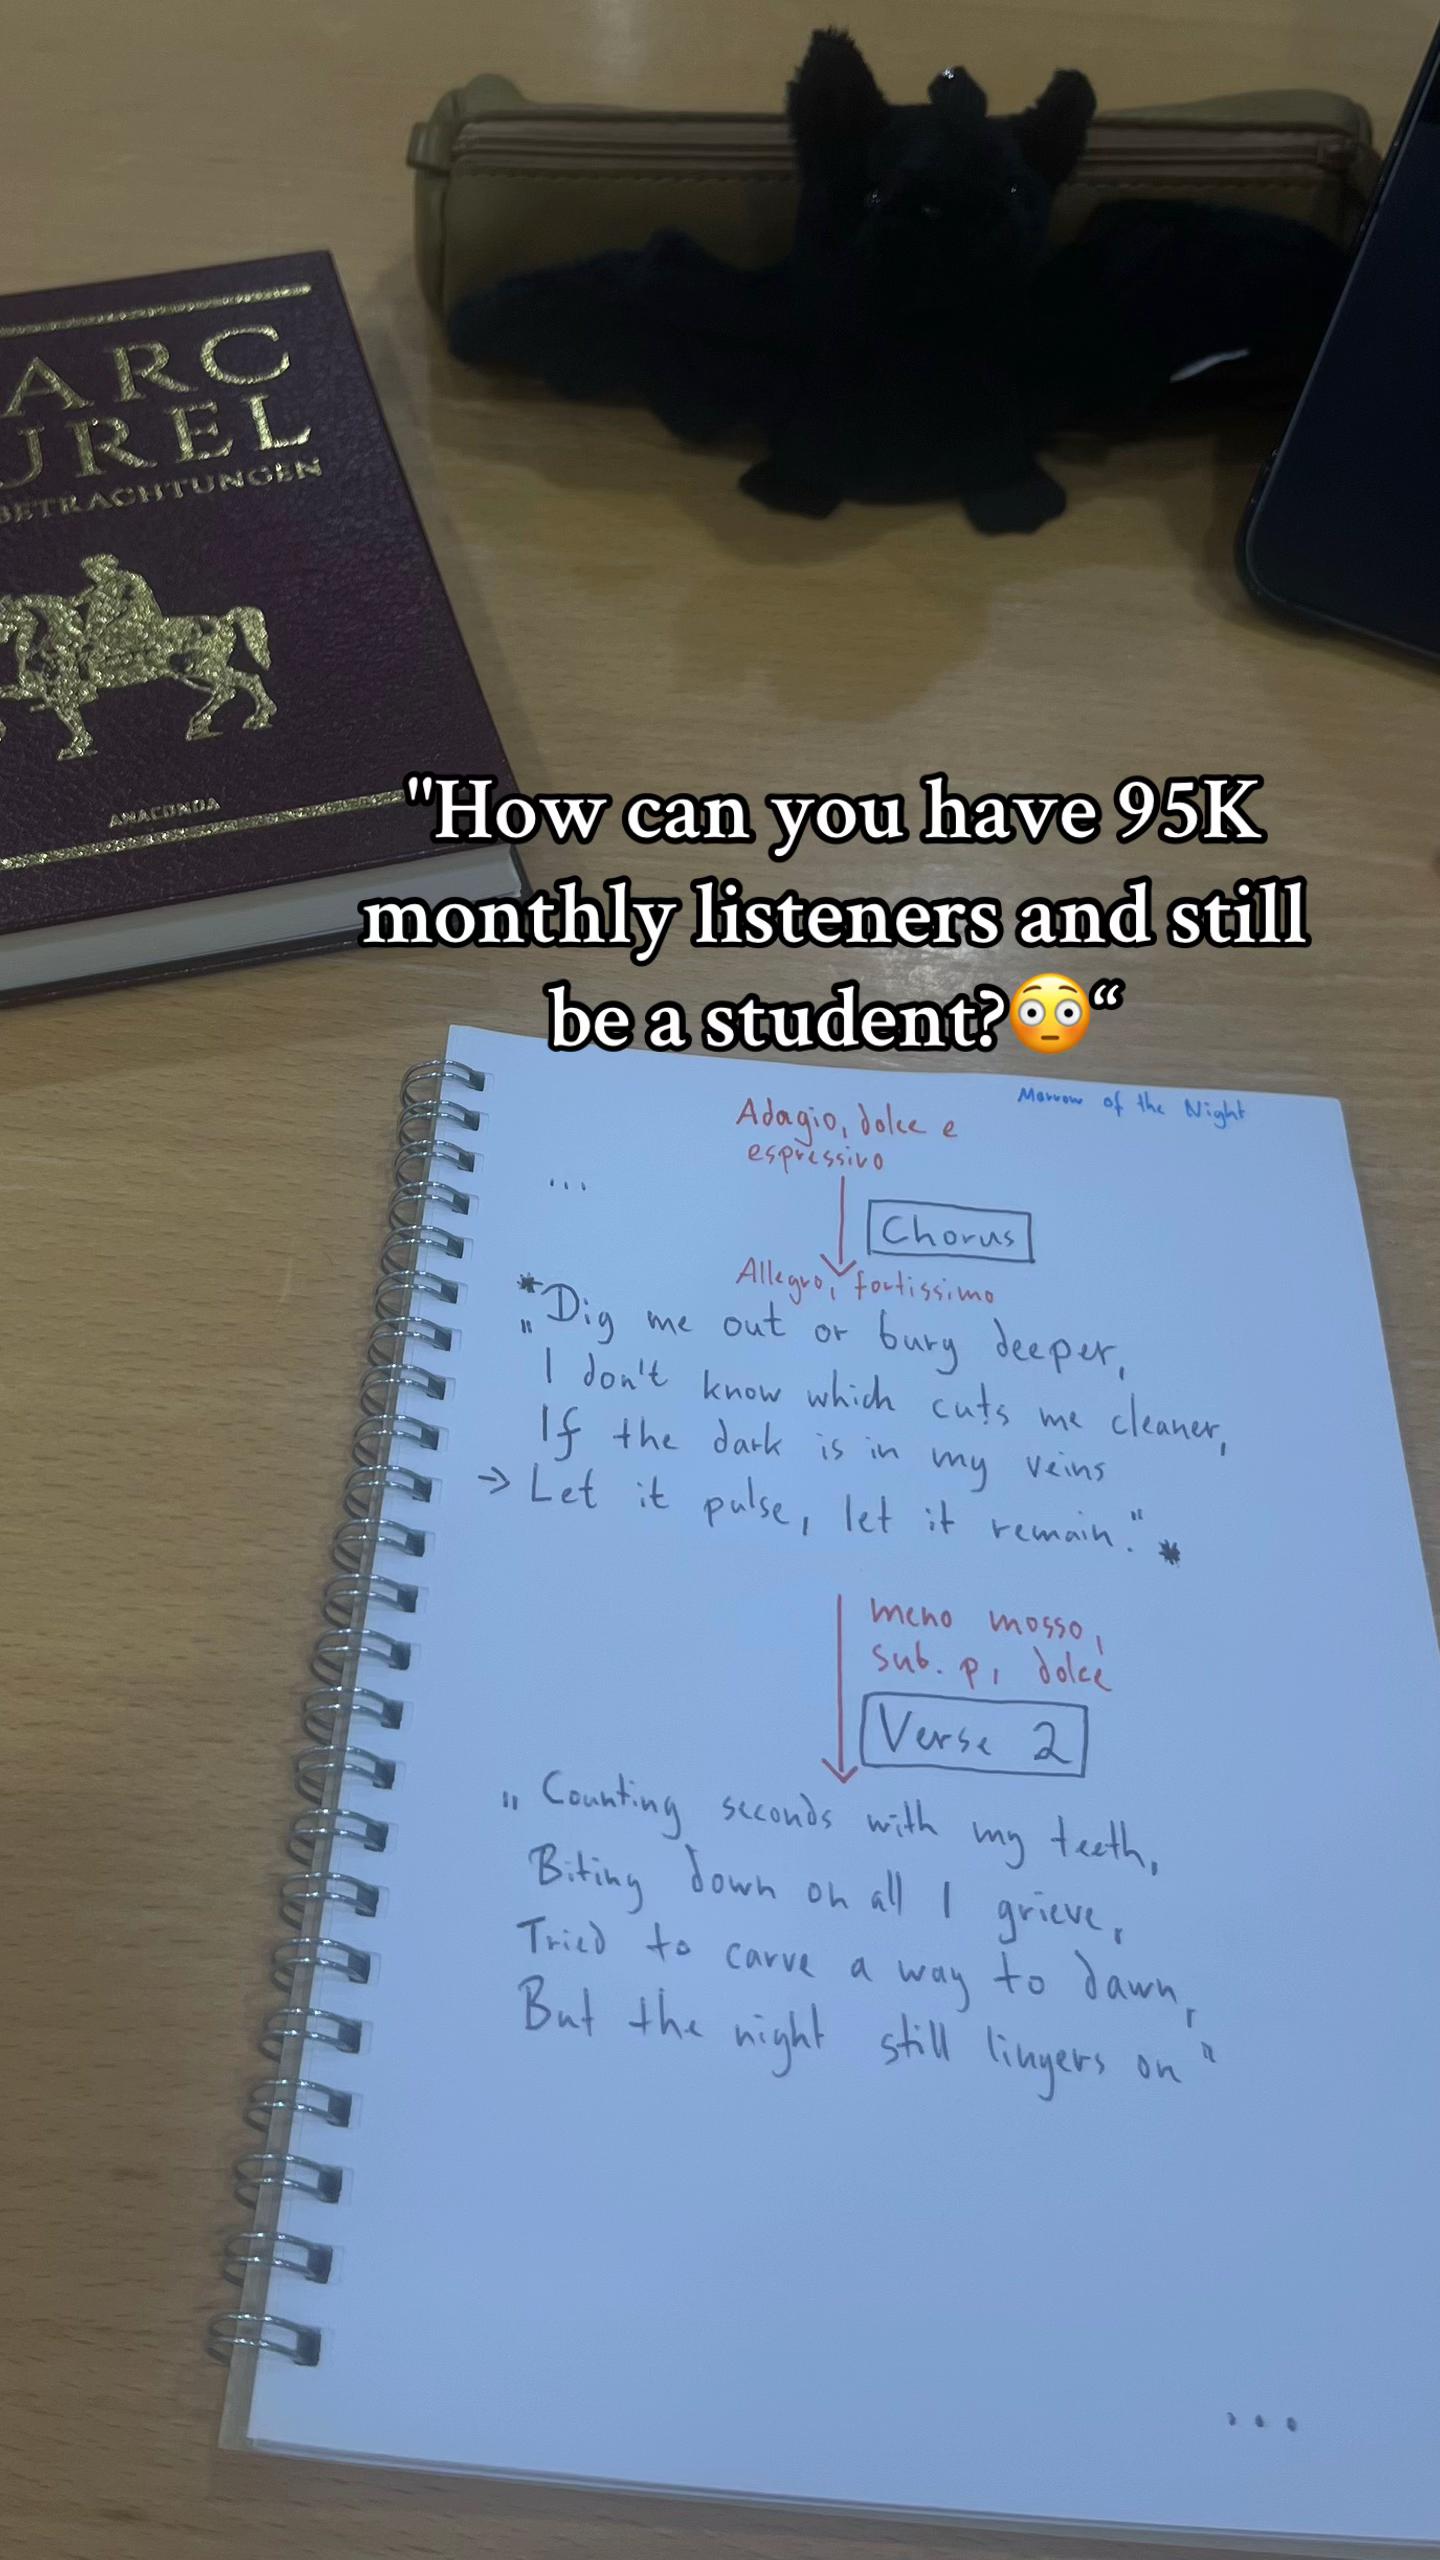 ARC
UREL
BETRACHTUNGEN
ANACONDA
"How can you have 95K
monthly listeners and still
be a student?😳“
Marrow of the Night
Adagio, dolce e
espressivo
...
Chorus
Allegro, fortissimo
* „Dig me out or bury deeper,
I don't know which cuts me cleaner,
If the dark is in my veins
→ Let it pulse, let it remain." *
meno mosso,
sub. p, dolce
Verse 2
„Counting seconds with my teeth,
Biting down on all I grieve,
Tried to carve a way to dawn,
But the night still lingers on"
...